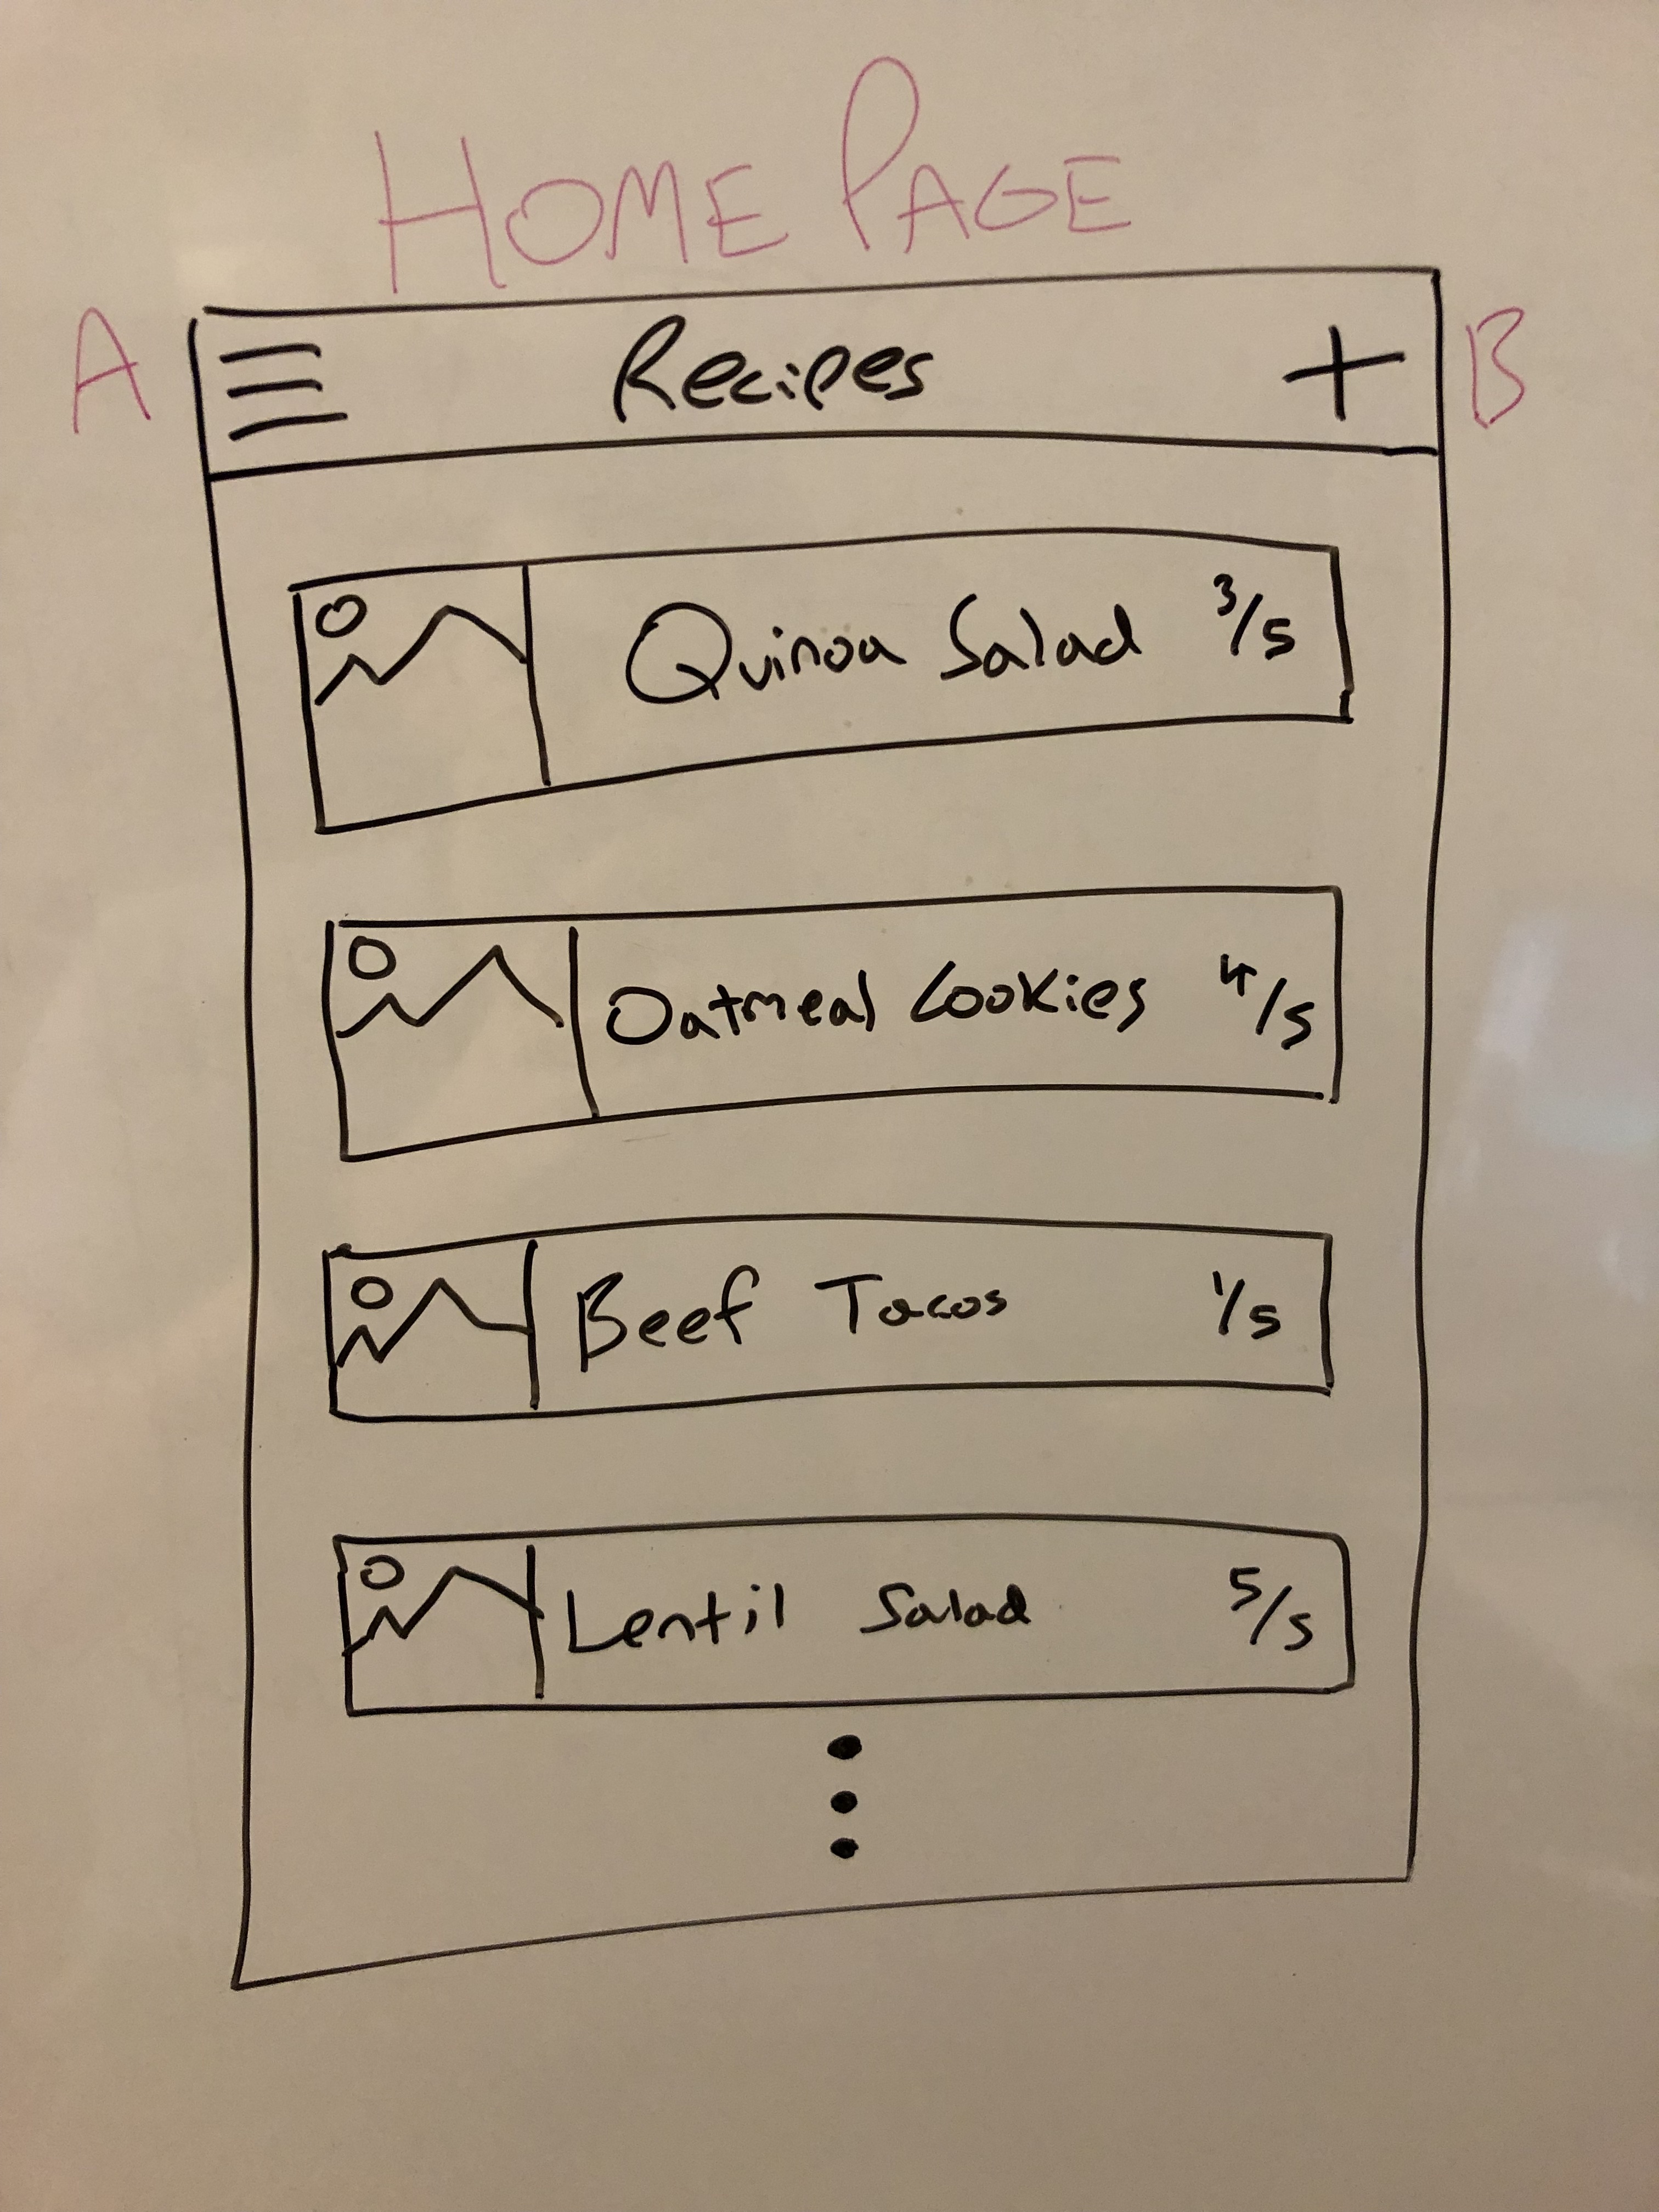 HOME PAGE
A Recipes B
Quinoa Salad 3/5
Oatmeal Cookies 4/5
Beef Tacos 1/5
Lentil Salad 5/5